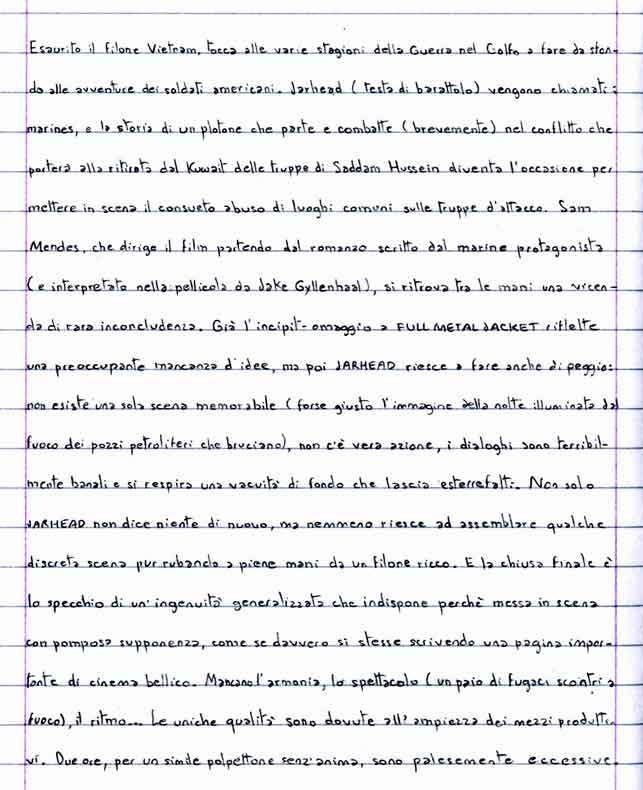 Esaurito il filone Vietnam, tocca alle varie stagioni della Guerra nel Golfo a fare da sfon-
do alle avventure dei soldati americani. Jarhead (testa di barattolo) vengono chiamati i
marines, e la storia di un plotone che parte e combatte (brevemente) nel conflitto che
porterà alla ritirata dal Kuwait delle truppe di Saddam Hussein diventa l'occasione per
mettere in scena il consueto abuso di luoghi comuni sulle truppe d'attacco. Sam
Mendes, che dirige il film partendo dal romanzo scritto dal marine protagonista
(e interpretato nella pellicola da Jake Gyllenhaal), si ritrova tra le mani una vicen-
da di rara inconcludenza. Già l'incipit-omaggio a FULL METAL JACKET riflette
una preoccupante mancanza d'idee, ma poi JARHEAD riesce a fare anche di peggio:
non esiste una sola scena memorabile (forse giusto l'immagine della notte illuminata dal
fuoco dei pozzi petroliferi che bruciano), non c'è vera azione, i dialoghi sono terribil-
mente banali e si respira una vacuità di fondo che lascia esterrefatti. Non solo
JARHEAD non dice niente di nuovo, ma nemmeno riesce ad assemblare qualche
discreta scena pur rubando a piene mani da un filone ricco. E la chiusa finale è
lo specchio di un'ingenuità generalizzata che indispone perchè messa in scena
con pomposa supponenza, come se davvero si stesse scrivendo una pagina impor-
tante di cinema bellico. Mancano l'armonia, lo spettacolo (un paio di fugaci scontri a
fuoco), il ritmo... Le uniche qualità sono dovute all'ampiezza dei mezzi produtti-
vi. Due ore, per un simile polpettone senz'anima, sono palesemente eccessive.